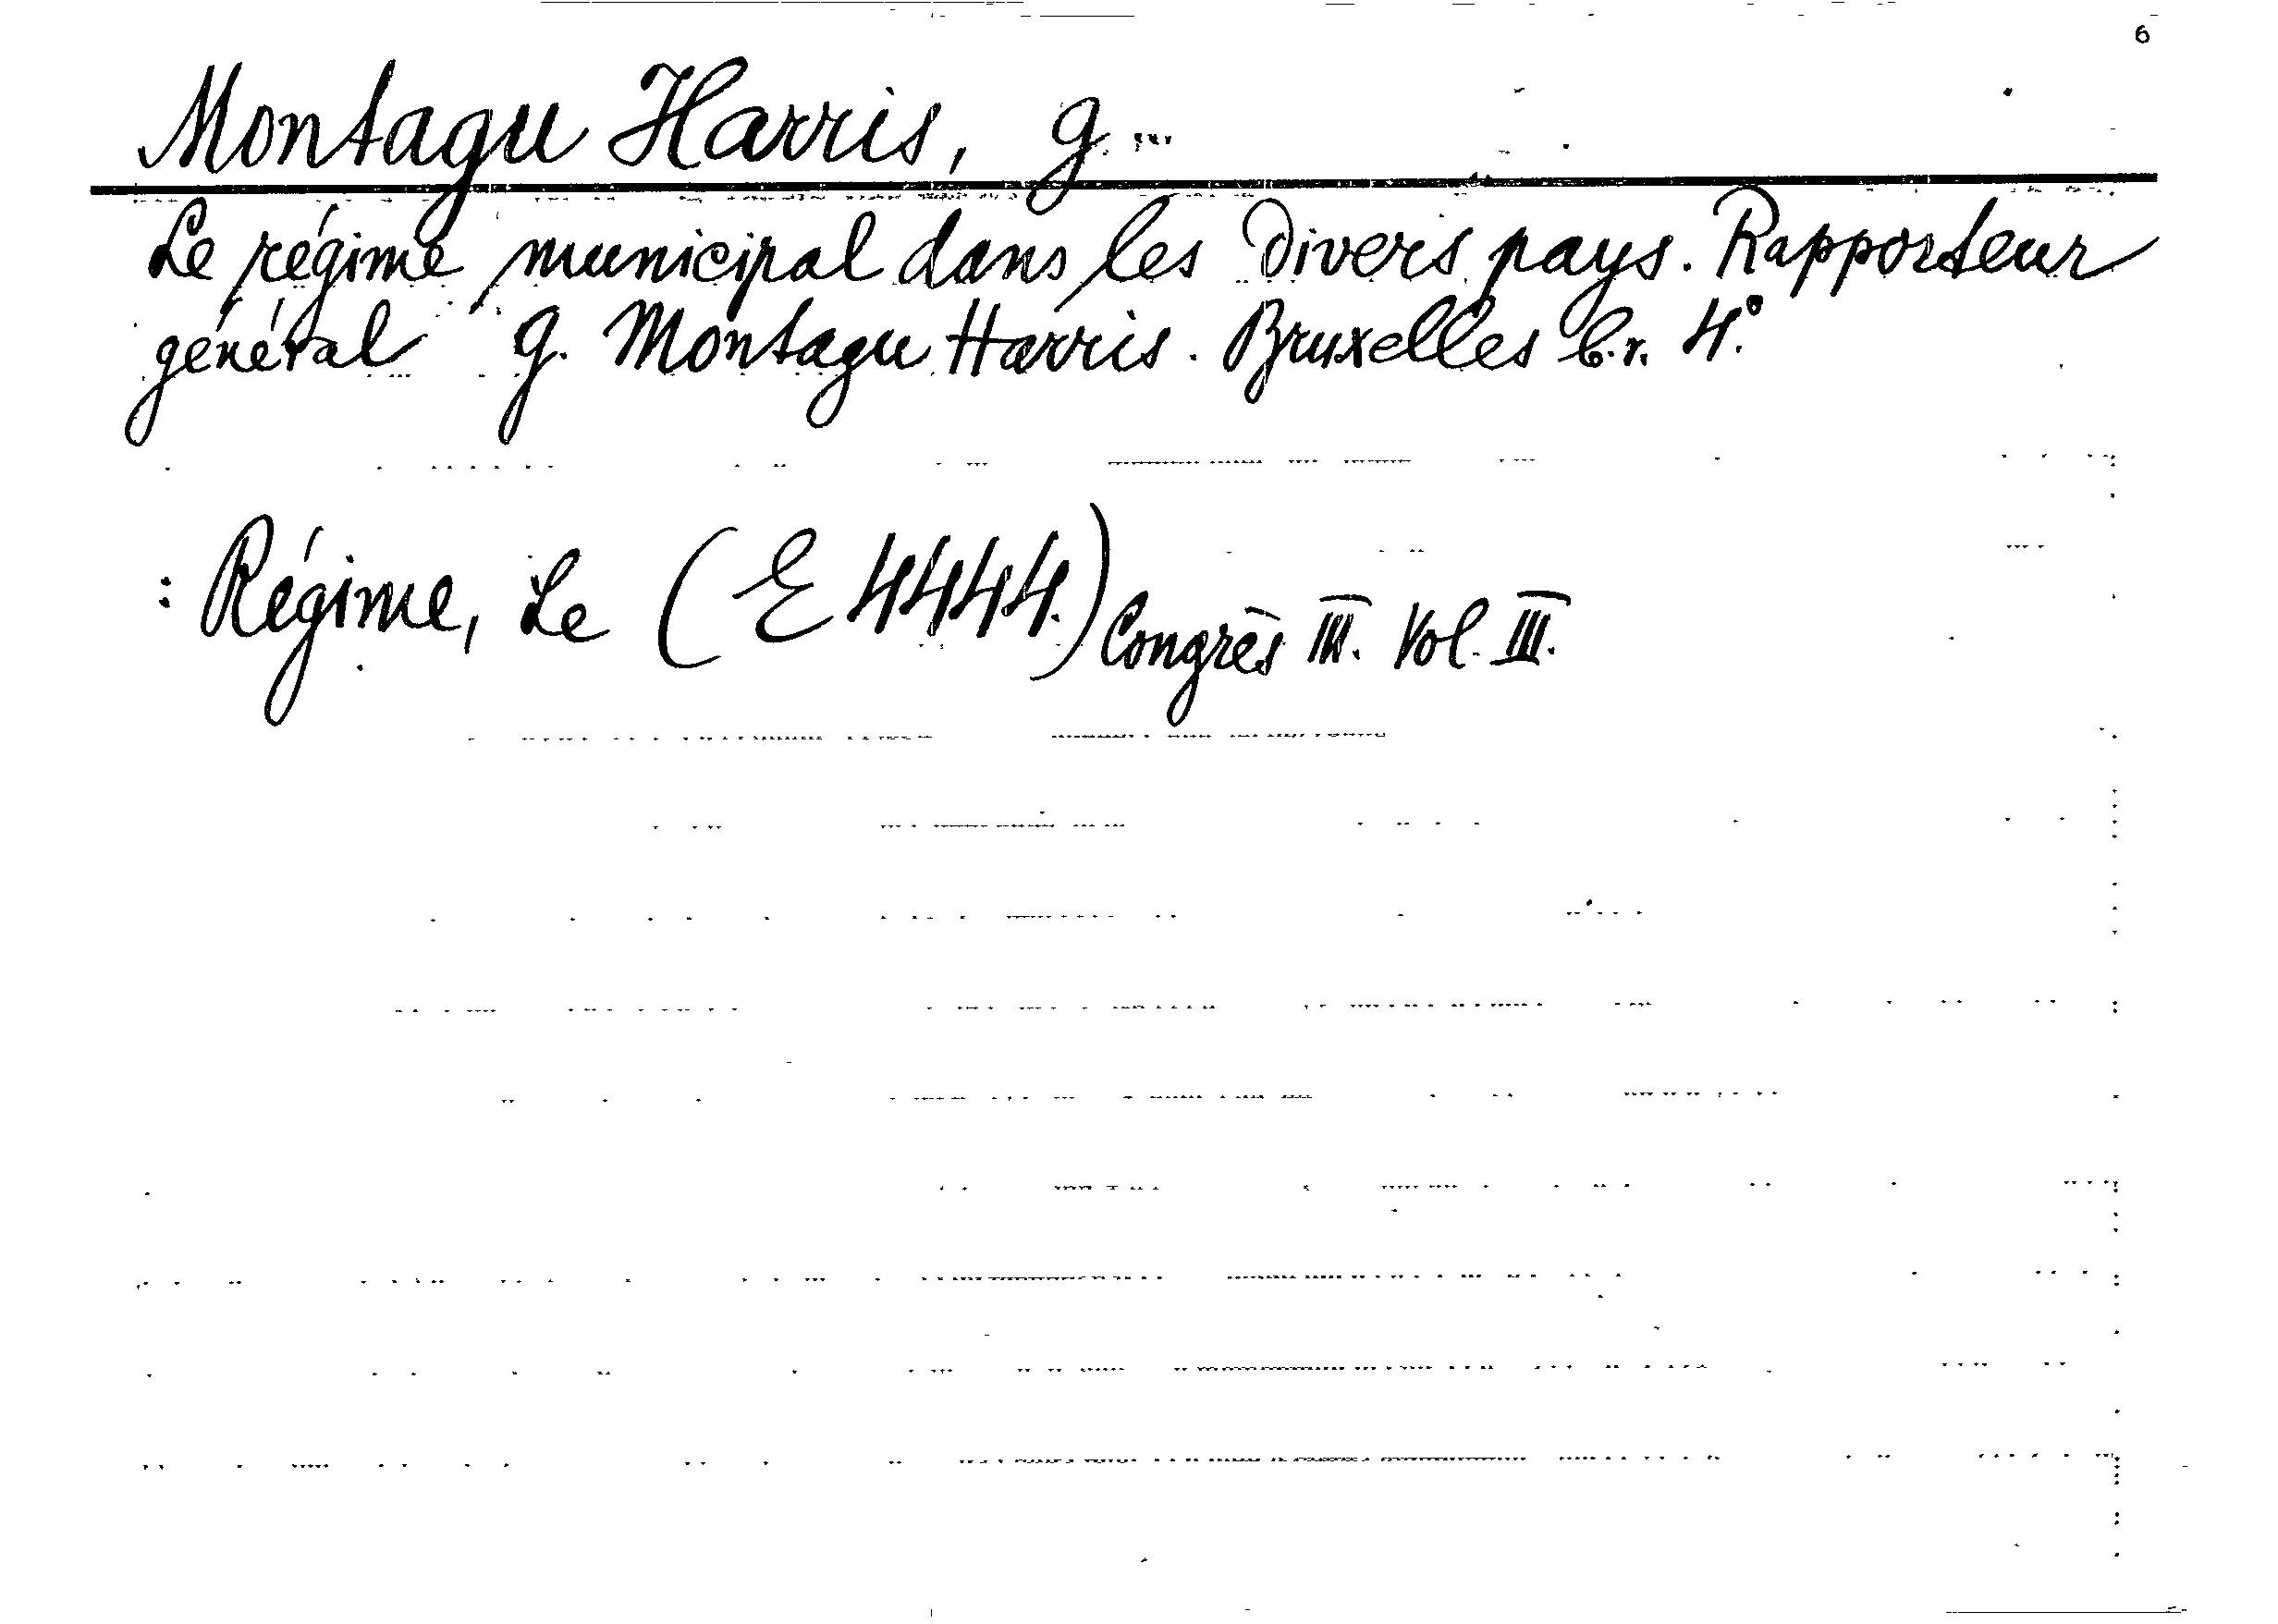 6
Montagu Harris, G...
Le régime municipal dans les divers pays. Rapporteur
général G. Montagu Harris. Bruxelles b.r. 4°.
: Régime, Le (E 4444.) Congrès III. Vol. III.